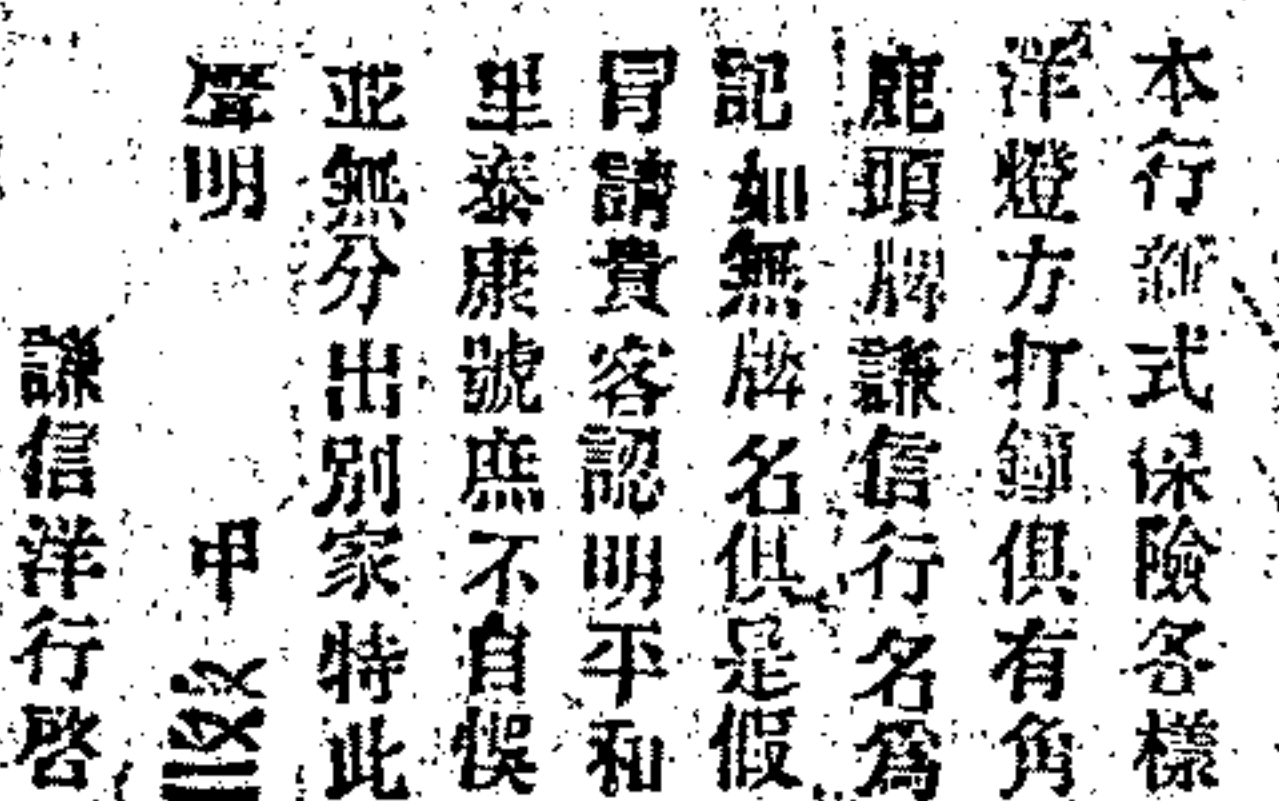 本行新式保險各樣
洋燈方打鐘俱有角
鹿頭牌謙信行名為
記如無牌名俱是假
冐請貴客認明平和
里泰康號庶不自悞
並無分出別家特此
聲明 申
謙信洋行啓